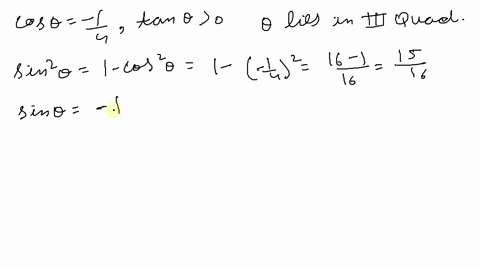 cosθ = -1/4, tanθ > 0 θ lies in III Quad.
sin²θ = 1 - cos²θ = 1 - (-1/4)² = 16-1/16 = 15/16
sinθ = -